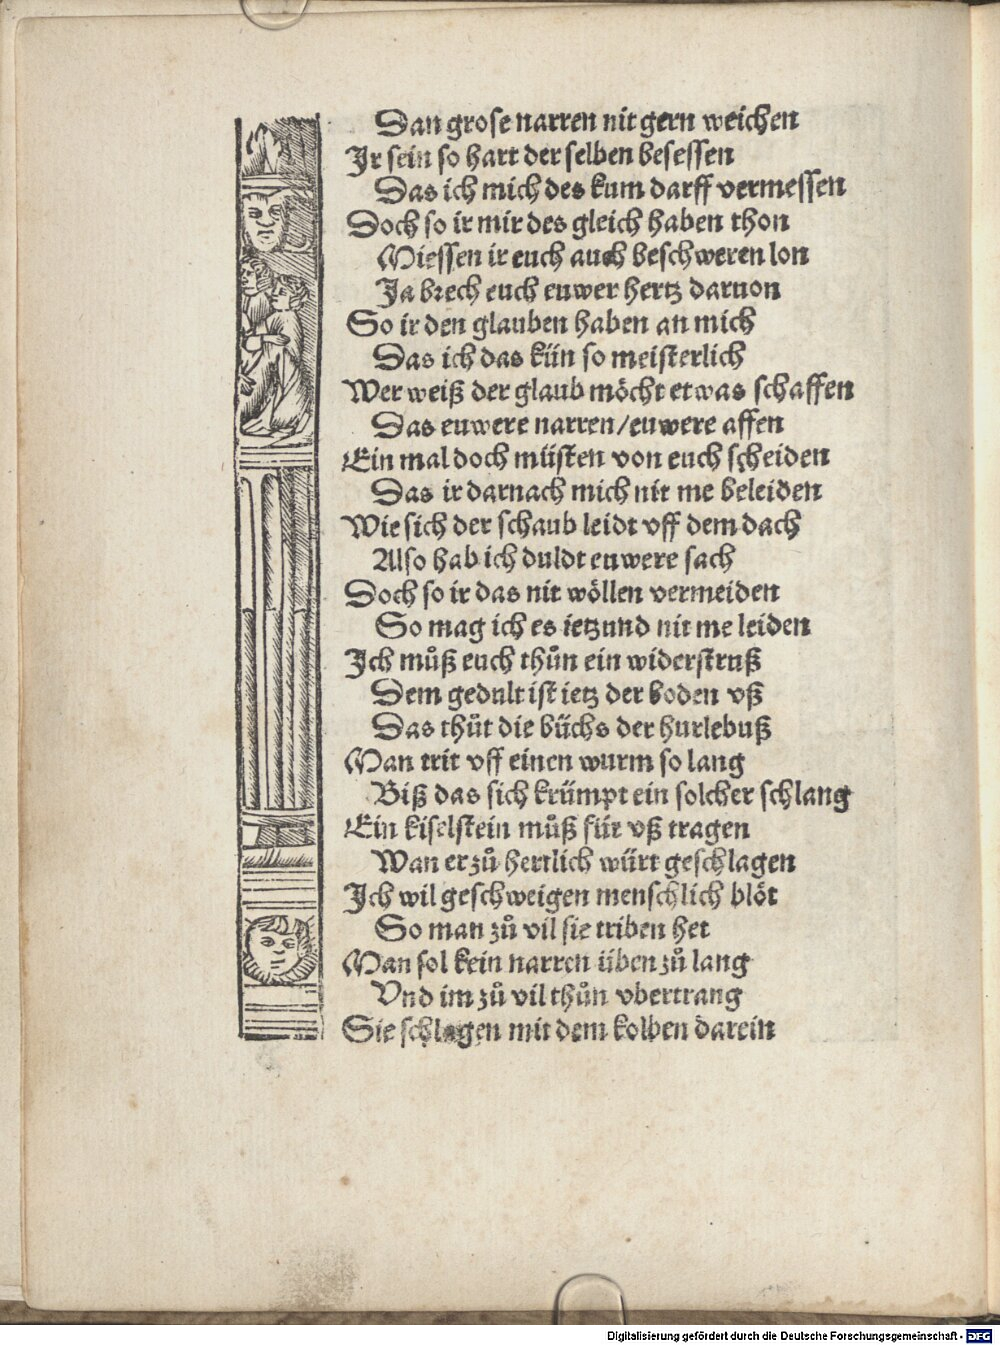 Dan grose narren nit gern weichen
Ir sein so hart der selben besessen
Das ich mich des kum darff vermessen
Doch so ir mir des gleich haben thon
Miessen ir euch auch beschweren lon
Ja brech euch euwer hertz daruon
So ir den glauben haben an mich
Das ich das kün so meisterlich
Wer weiß der glaub möcht etwas schaffen
Das euwere narren/euwere affen
Ein mal doch müsten von euch scheiden
Das ir darnach mich nit me beleiden
Wie sich der schaub leidt vff dem dach
Also hab ich duldt euwere sach
Doch so ir das nit wöllen vermeiden
So mag ich es ietzund nit me leiden
Ich můß euch thůn ein widerstruß
Dem gedult ist ietz der boden vß
Das thůt die büchs der hurlebuß
Man trit vff einen wurm so lang
Biß das sich krümpt ein solcher schlang
Ein kiselstein můß für vß tragen
Wan er zů hertlich würt geschlagen
Ich wil geschweigen menschlich blöt
So man zů vil sie triben het
Man sol kein narren üben zů lang
Vnd im zů vil thůn vbertrang
Sie schlagen mit dem kolben darein
Digitalisierung gefördert durch die Deutsche Forschungsgemeinschaft - DFG